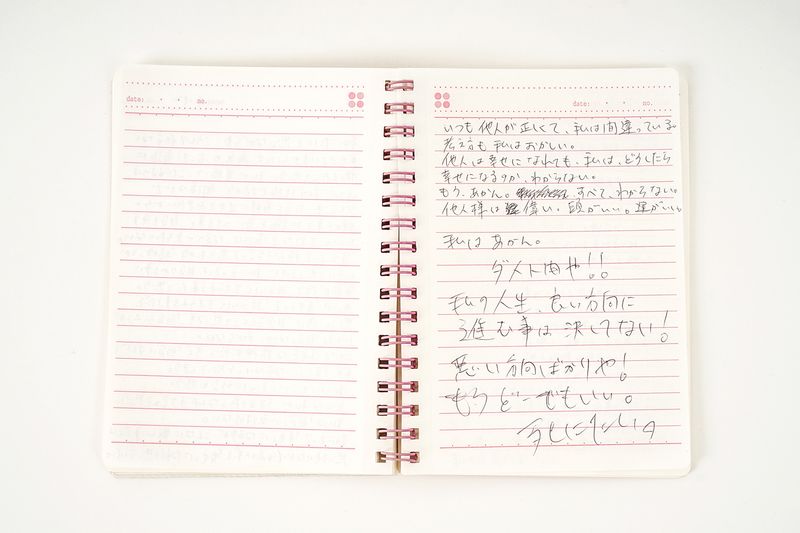 date: ・ ・ no.
date: ・ ・ no.
いつも他人が正しくて、私は間違っている。
考え方も私はおかしい。
他人は幸せになれても、私は、どうしたら
幸せになるのか、わからない。
もう、あかん。すべて、わからない。
他人様は偉い。頭がいい。運がいい。
私はあかん。
ダメ人間や!!
私の人生、良い方向に
進む事は決してない!
悪い方向ばかりや!
もうどーでもいい。
死にたい。